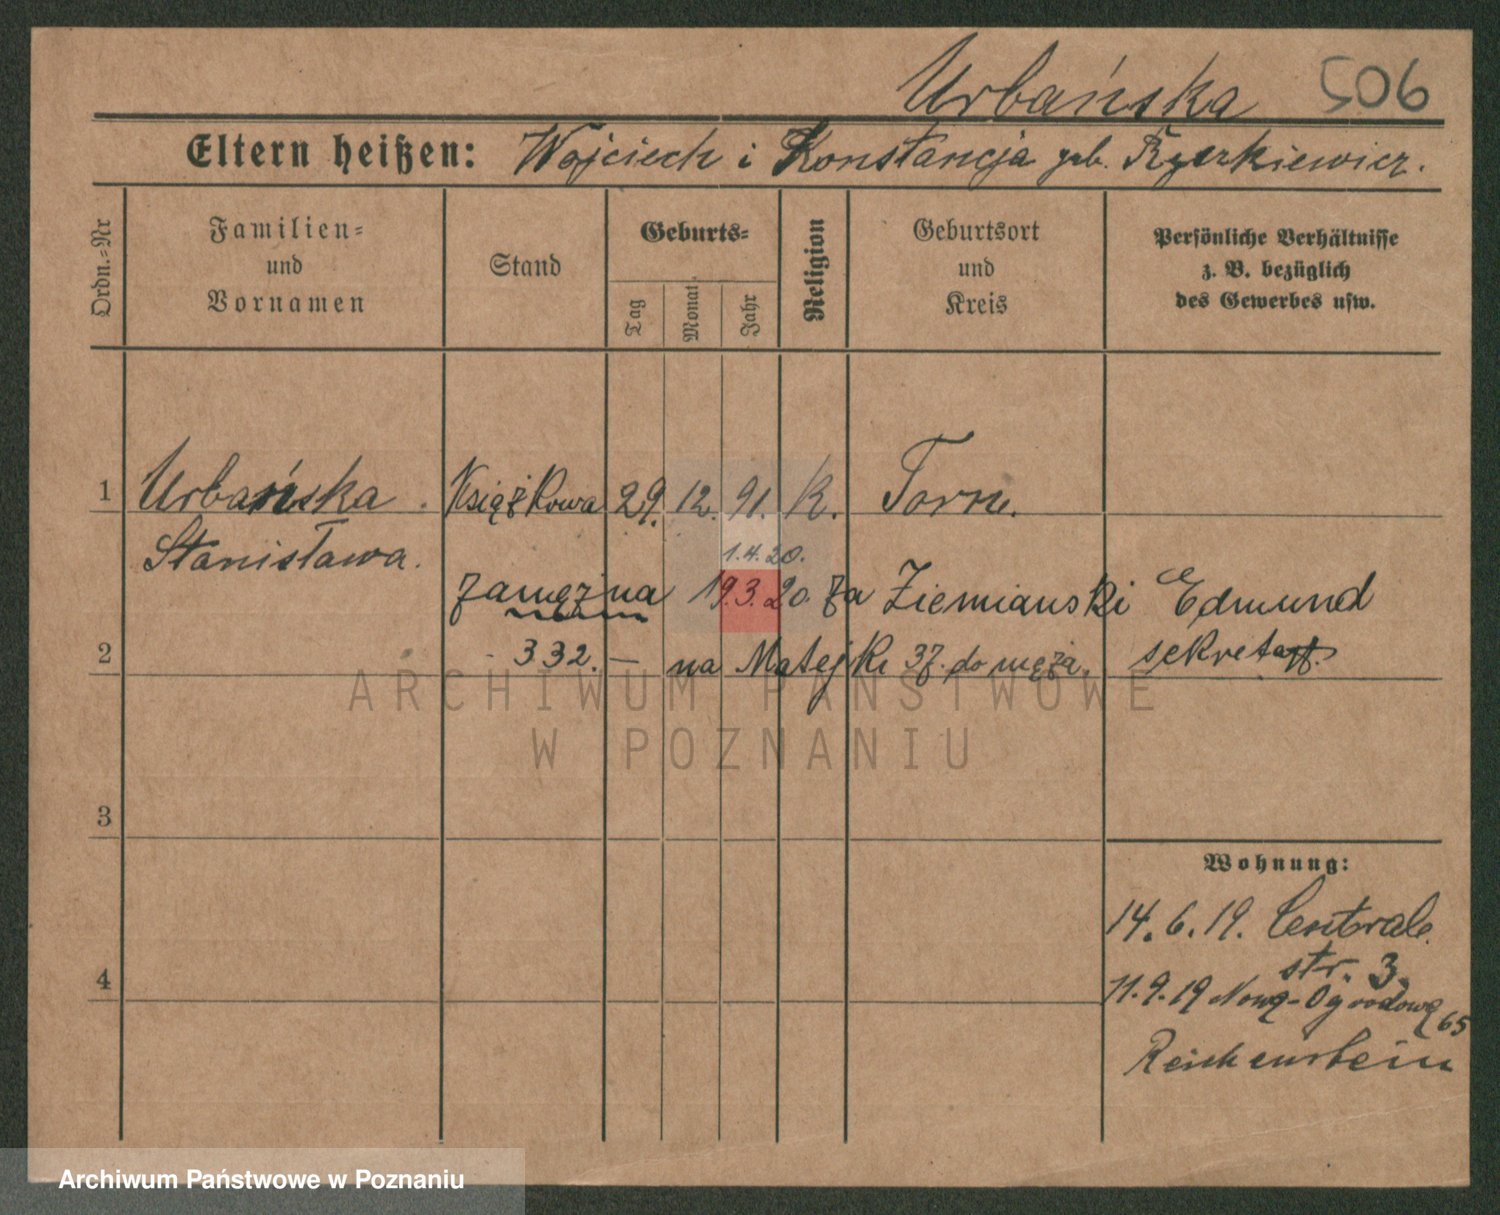 Urbańska 506
Eltern heißen: Wojciech i Konstancja
Ordn.-Nr
Familien-
und
Vornamen
Stand
Geburts-
Tag
Monat
Jahr
Religion
Geburtsort
und
Kreis
Persönliche Verhältnisse
z. B. bezüglich
des Gewerbes usw.
1 Urbańska. Książkowa 29. 12. 91. K. Torn.
Stanisława. 1.4.20.
zamężna 19.3.20. za Ziemianski Edmund
2 332. — na Matejki 37. do męża. sekretarz.
ARCHIWUM PAŃSTWOWE
W POZNANIU
3
Wohnung:
14.6.19. Centrale
str. 3.
4
11.9.19 Nową-Ogrodową 65
Reichenstein
Archiwum Państwowe w Poznaniu